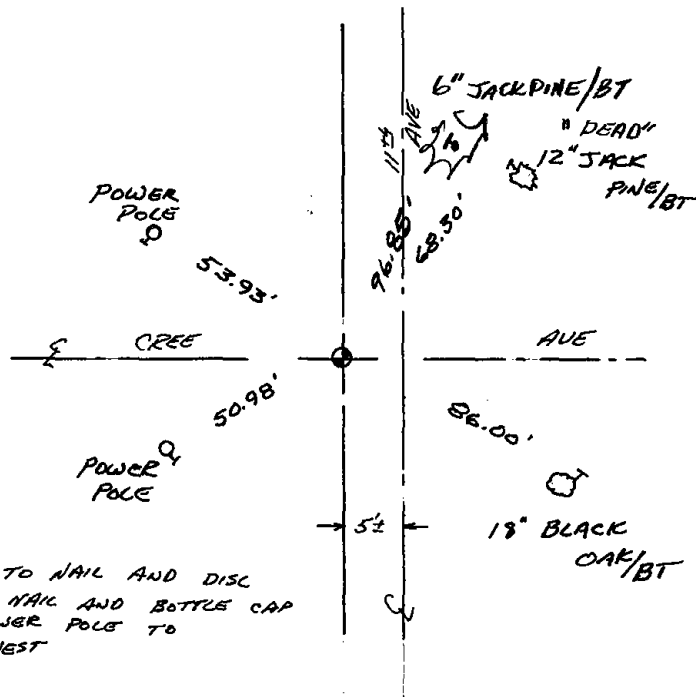 6" JACKPINE/BT
"DEAD"
12" JACK
PINE/BT
11th
AVE
POWER
POLE
53.93'
96.85'
68.30'
CREE
AVE
50.98'
86.00'
POWER
POLE
5'±
18" BLACK
OAK/BT
TO NAIL AND DISC
NAIL AND BOTTLE CAP
POLE TO